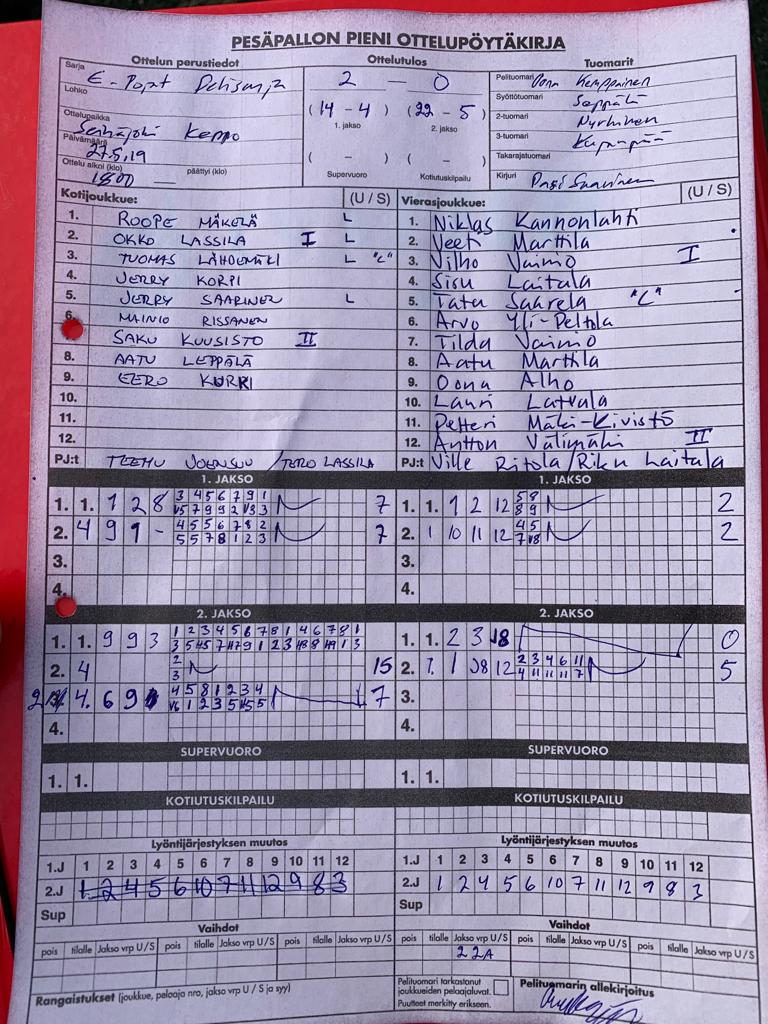 PESÄPALLON PIENI OTTELUPÖYTÄKIRJA
Ottelun perustiedot
Ottelutulos
Tuomarit
Sarja
E-Pojat
Lohko
2 — 0
Pelituomari
Kemppainen
(14 - 4) (22 - 5)
1. jakso 2. jakso
Syöttötuomari Seppälä
Ottelupaikka
Seinäjoki Keppo
2-tuomari
Nyrhinen
Päivämäärä
27.5.19
3-tuomari
Takarajatuomari
Ottelu alkoi (klo) päättyi (klo)
1800
( - ) ( - )
Supervuoro Kotiutuskilpailu
Kirjuri Pasi Saarinen
Kotijoukkue: (U / S)
1. ROOPE MÄKELÄ L
2. OKKO LASSILA I L
3. TUOMAS LÄHDEMÄKI L "C"
4. JERRY KORPI
5. JERRY SAARINEN L
6. MAINIO RISSANEN
SAKU KUUSISTO II
8. AATU LEPPÄLÄ
9. EERO KURRI
10.
11.
12.
PJ:t TEEMU JOENSUU / TERO LASSILA
Vierasjoukkue: (U / S)
1. Niklas Kannonlahti
2. Veeti Marttila
3. Vilho Vainio I
4. Sisu Laitala
5. Tatu Saarela "C"
6. Arvo Yli-Peltola
7. Tilda Vainio
8. Aatu Marttila
9. Oona Alho
10. Lauri Latvala
11. Petteri Mäki-Kivistö
12. Antton Välimäki II
PJ:t Ville Ritola/Riku Laitala
1. JAKSO
1. 1. 1 2 8 3 4 5 6 7 9 1 7
2. 4 9 1 - 4 5 5 6 7 8 2 7
5 5 7 8 1 2 3
3.
4.
1. JAKSO
1. 1. 1 2 12 5 8 2
8 9
2. 1 10 11 12 4 5 2
3.
4.
2. JAKSO
1. 1. 9 9 3 1 2 3 4 5 6 7 8 1 4 6 7 8 1
2. 4 2 15
3
4. 6 9 4 5 8 1 2 3 4 7
4.
2. JAKSO
1. 1. 2 3 0
2. 1 12 2 3 4 6 11 5
4 11 11 11 7
3.
4.
SUPERVUORO
1. 1.
SUPERVUORO
1. 1.
KOTIUTUSKILPAILU
KOTIUTUSKILPAILU
Lyöntijärjestyksen muutos
1.J 1 2 3 4 5 6 7 8 9 10 11 12
2.J 1 2 4 5 6 10 7 11 12 9 8 3
Sup
Lyöntijärjestyksen muutos
1.J 1 2 3 4 5 6 7 8 9 10 11 12
2.J 1 2 4 5 6 10 7 11 12 9 8 3
Sup
Vaihdot
pois tilalle Jakso vrp U/S pois tilalle Jakso vrp U/S pois tilalle Jakso vrp U/S
Vaihdot
pois tilalle Jakso vrp U/S pois tilalle Jakso vrp U/S pois tilalle Jakso vrp U/S
2 2A
Rangaistukset (joukkue, pelaaja nro, jakso vrp U / S ja syy)
Pelituomari tarkastanut
joukkueiden pelaajaluvat.
Puutteet merkitty erikseen.
Pelituomarin allekirjoitus